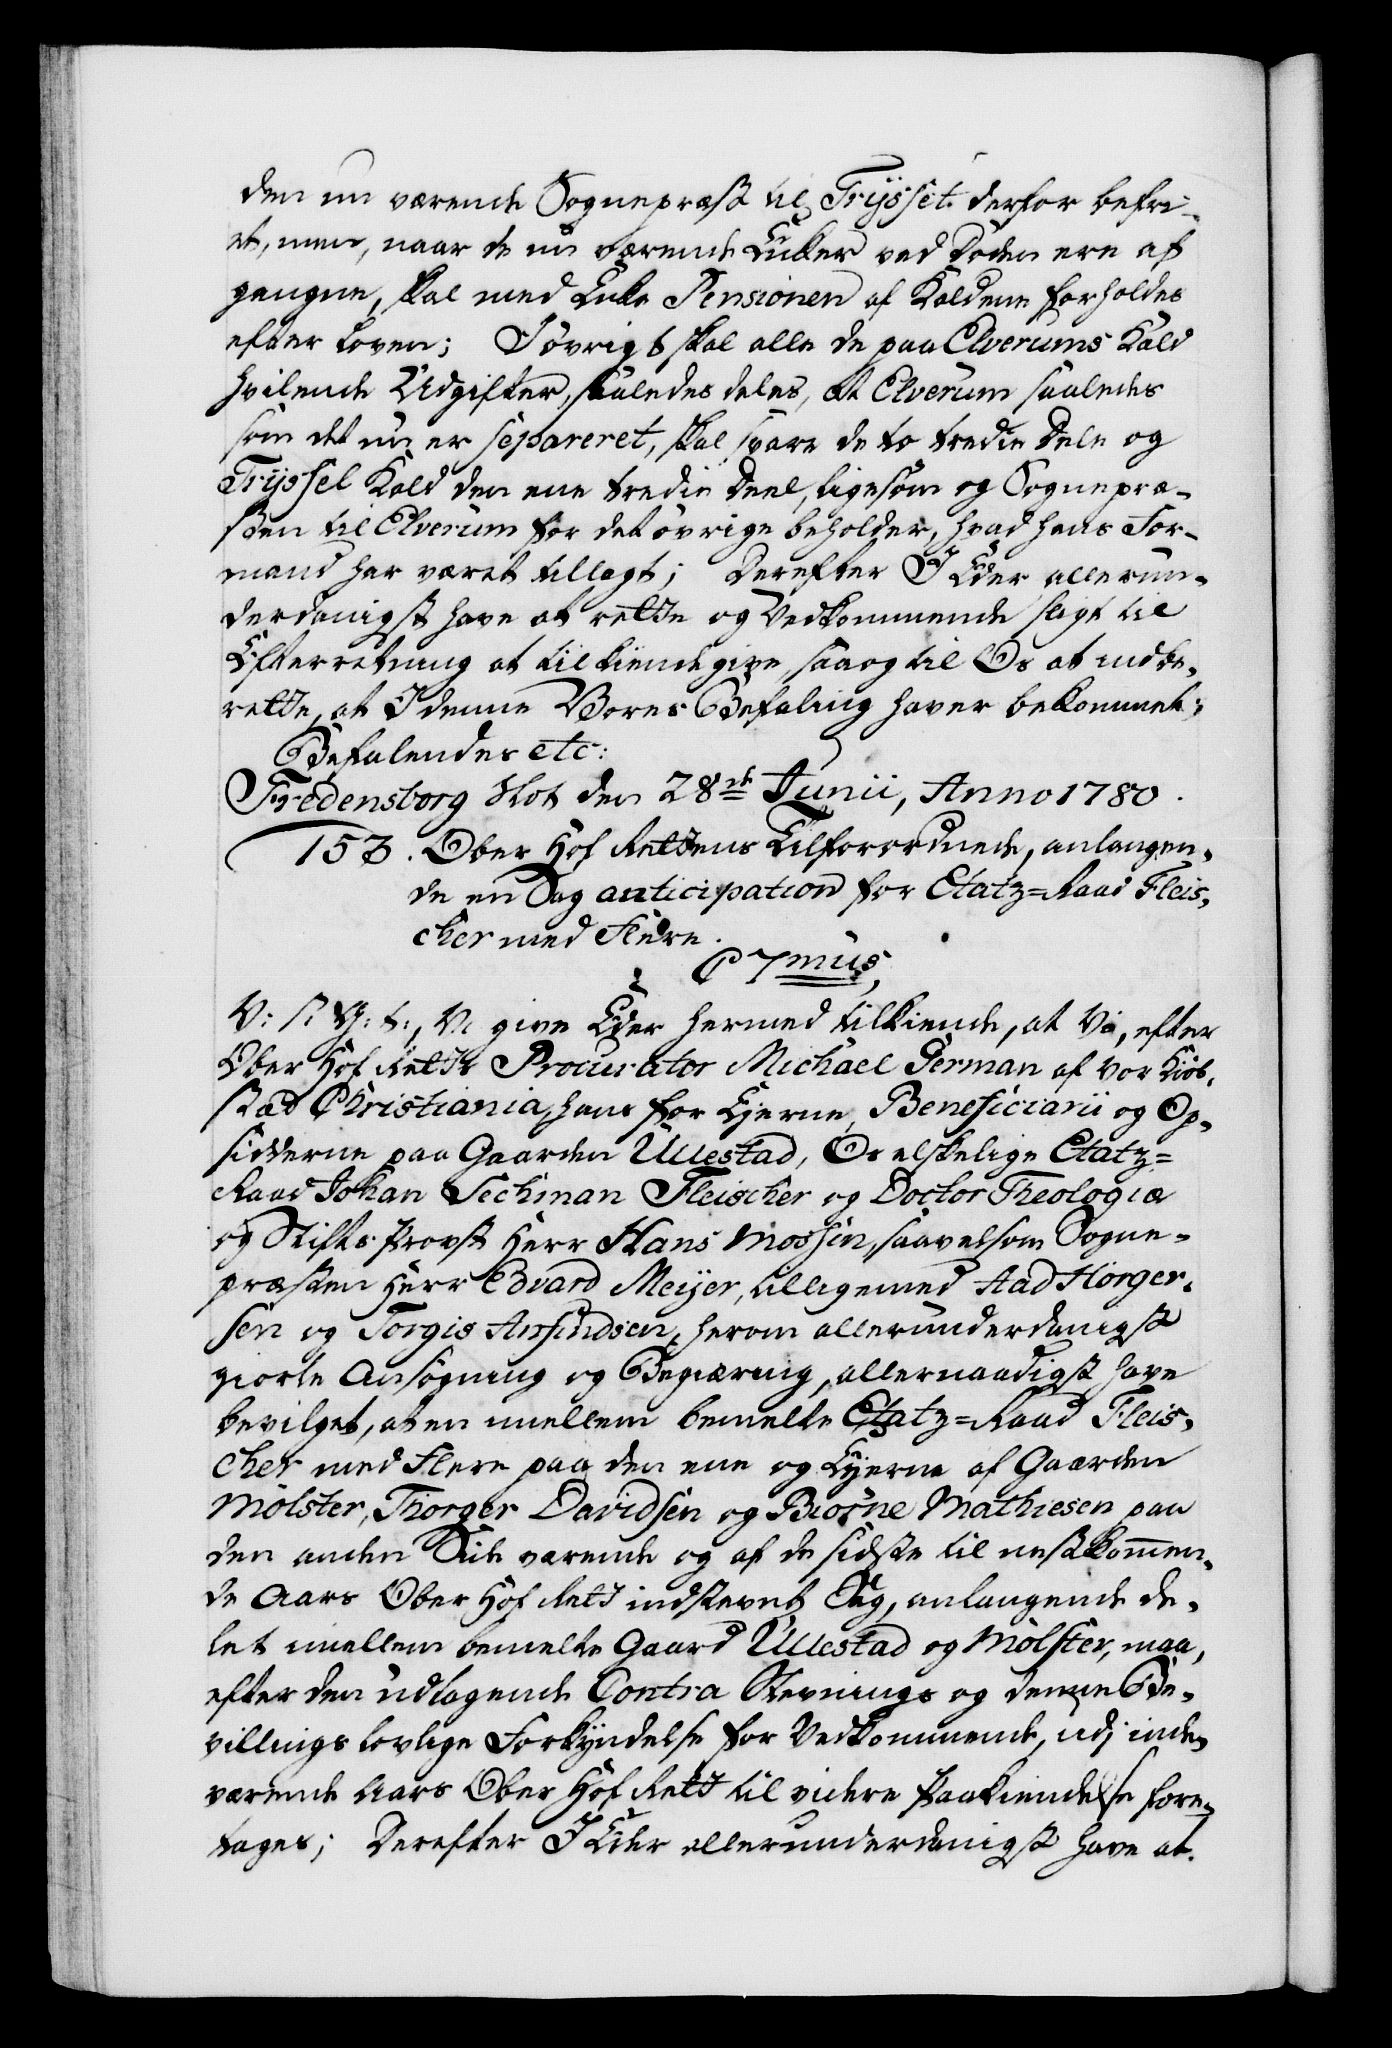 den nu værende Sognepræst til Trÿsset derfor befri-
et, men, naar de nu værende Enker ved Døden ere af
gangne, skal med Enke Pensionen af Kaldene forholdes
efter loven; I øvrigt skal alle de paa Elverums Kald
hvilende Udgifter, saaledes deles, at Elverum saaledes
som det nu er separeret, skal svare de to tredie Dele og
Trÿssel Kald den ene tredie Deel, ligesom og Sognepræ-
sten til Elverum for det øvrige beholder, hvad hans For-
mand har været tillagt; Derefter I Eder allerun-
derdanigst have at rette og Vedkommende sligt til
Efterretning at tilkiendegive, saa og til Os at indbe-
rette, at I denne Vores Befaling haver bekommet;
Befalendes etc:
Fredensborg Slot den 28de Junii, Anno 1780.
153. Ober Hof Rettens Tilforordnede, anlangen-
de en Sag anticipation for Etatz=Raad Fleis-
cher med Flere.
C 7mus,
V: S: G: T:, Vi give Eder hermed tilkiende, at Vi, efter
Ober Hof Retts Procurator Michael German af vor Kiøb-
stæd Christiania, hans for Ejerne, Beneficiarii og Op-
sidderne paa Gaarden Ullestad, Os elskelige Etatz=
Raad Johan Sechman Fleischer og Doctor Theologiæ
og Stifts Provst Herr Hans Mossin, saavelsom Sogne-
præsten Herr Edvard Meÿer, tilligemed Aad Horger-
sen og Torgis Anfindsen, herom allerunderdanigst
giorte Ansøgning og Begiæring, allernaadigst have
bevilget, at en imellem bemelte Etatz=Raad Fleis-
cher med Flere paa den ene og Ejerne af Gaarden
Mølster, Thorger Davidsen og Biørne Mathiesen paa
den anden Side værende og af de sidste til nestkommen-
de Aars Ober Hof Rett indstevnet Sag, anlangende de-
let imellem bemelte Gaard Ullestad og Mølster, maa,
efter den udtagende Contra Stevnings og denne Be-
villings lovlige Forkÿndelse for Vedkommende, udj inde-
værende Aars Ober Hof Rett til videre Paakiendelse fore-
tages; Derefter I Eder allerunderdanigst have at